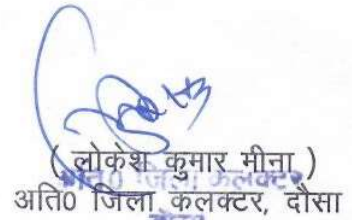 ( लोकेश कुमार मीना )
अति0 जिला कलक्टर
अति0 जिला कलक्टर, दौसा
दौसा